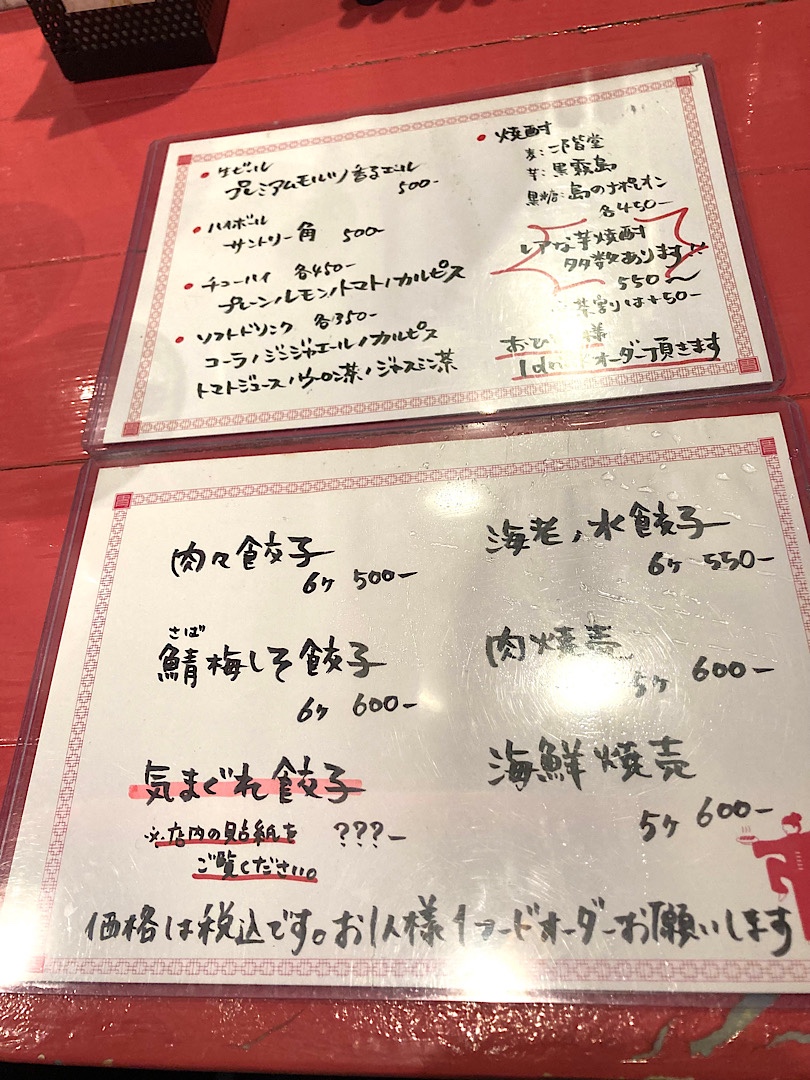 ・生ビール
プレミアムモルツ / 香るエール
500-
・ハイボール
サントリー角 500-
・チューハイ 各450-
プレーン / レモン / トマト / カルピス
・ソフトドリンク 各350-
コーラ / ジンジャエール / カルピス
トマトジュース / ウーロン茶 / ジャスミン茶
・焼酎
麦:二階堂
芋:黒霧島
黒糖:島のナポレオン
各450-
レアな芋焼酎
多数あります!!
550〜
茶割りは+50-
様
オーダー頂きます
肉々餃子
6ヶ 500-
さば
鯖梅しそ餃子
6ヶ 600-
気まぐれ餃子
※店内の貼紙を ???-
ご覧ください。
海老ノ水餃子
6ヶ 550-
肉焼売
5ヶ 600-
海鮮焼売
5ヶ 600-
価格は税込です。お1人様1フードオーダーお願いします